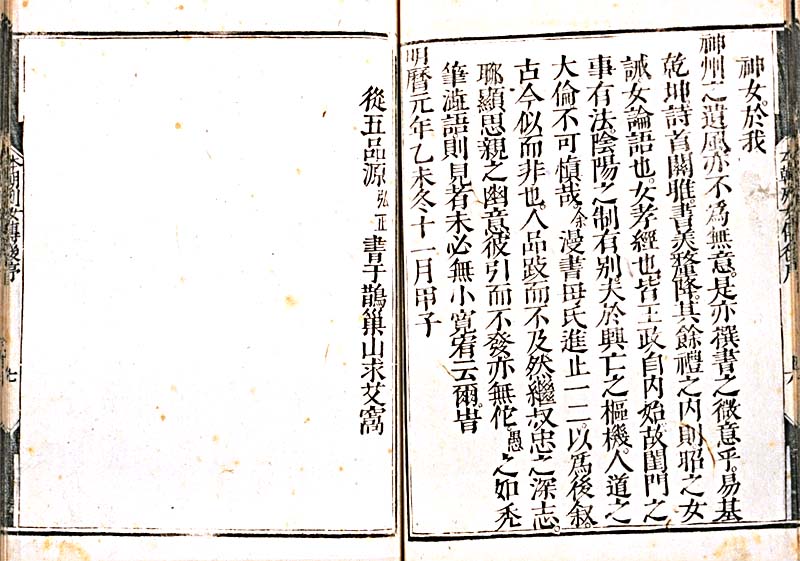 神女。於我
神州之遺風。亦不爲無意。是亦撰書之微意乎。易基
乾坤。詩首關雎。書美釐降。其餘禮之内則昭之女
誡。女論語也。女孝經也。皆王政自内始。故閨門之
事有法。陰陽之制有別。夫於興亡之樞機。人道之
大倫不可慎哉。余漫書母氏進止一二。以爲後叙。
古今似而非也。人品跂而不及。然繼叔忠之深志。
聊顯思親之幽意。彼引而不發亦無佗。愚之如禿
筆澁語則見者未必無小寛宥云爾。旹
明曆元年乙未冬十一月甲子
從五品源弘正書于鵲巢山求艾窩
七